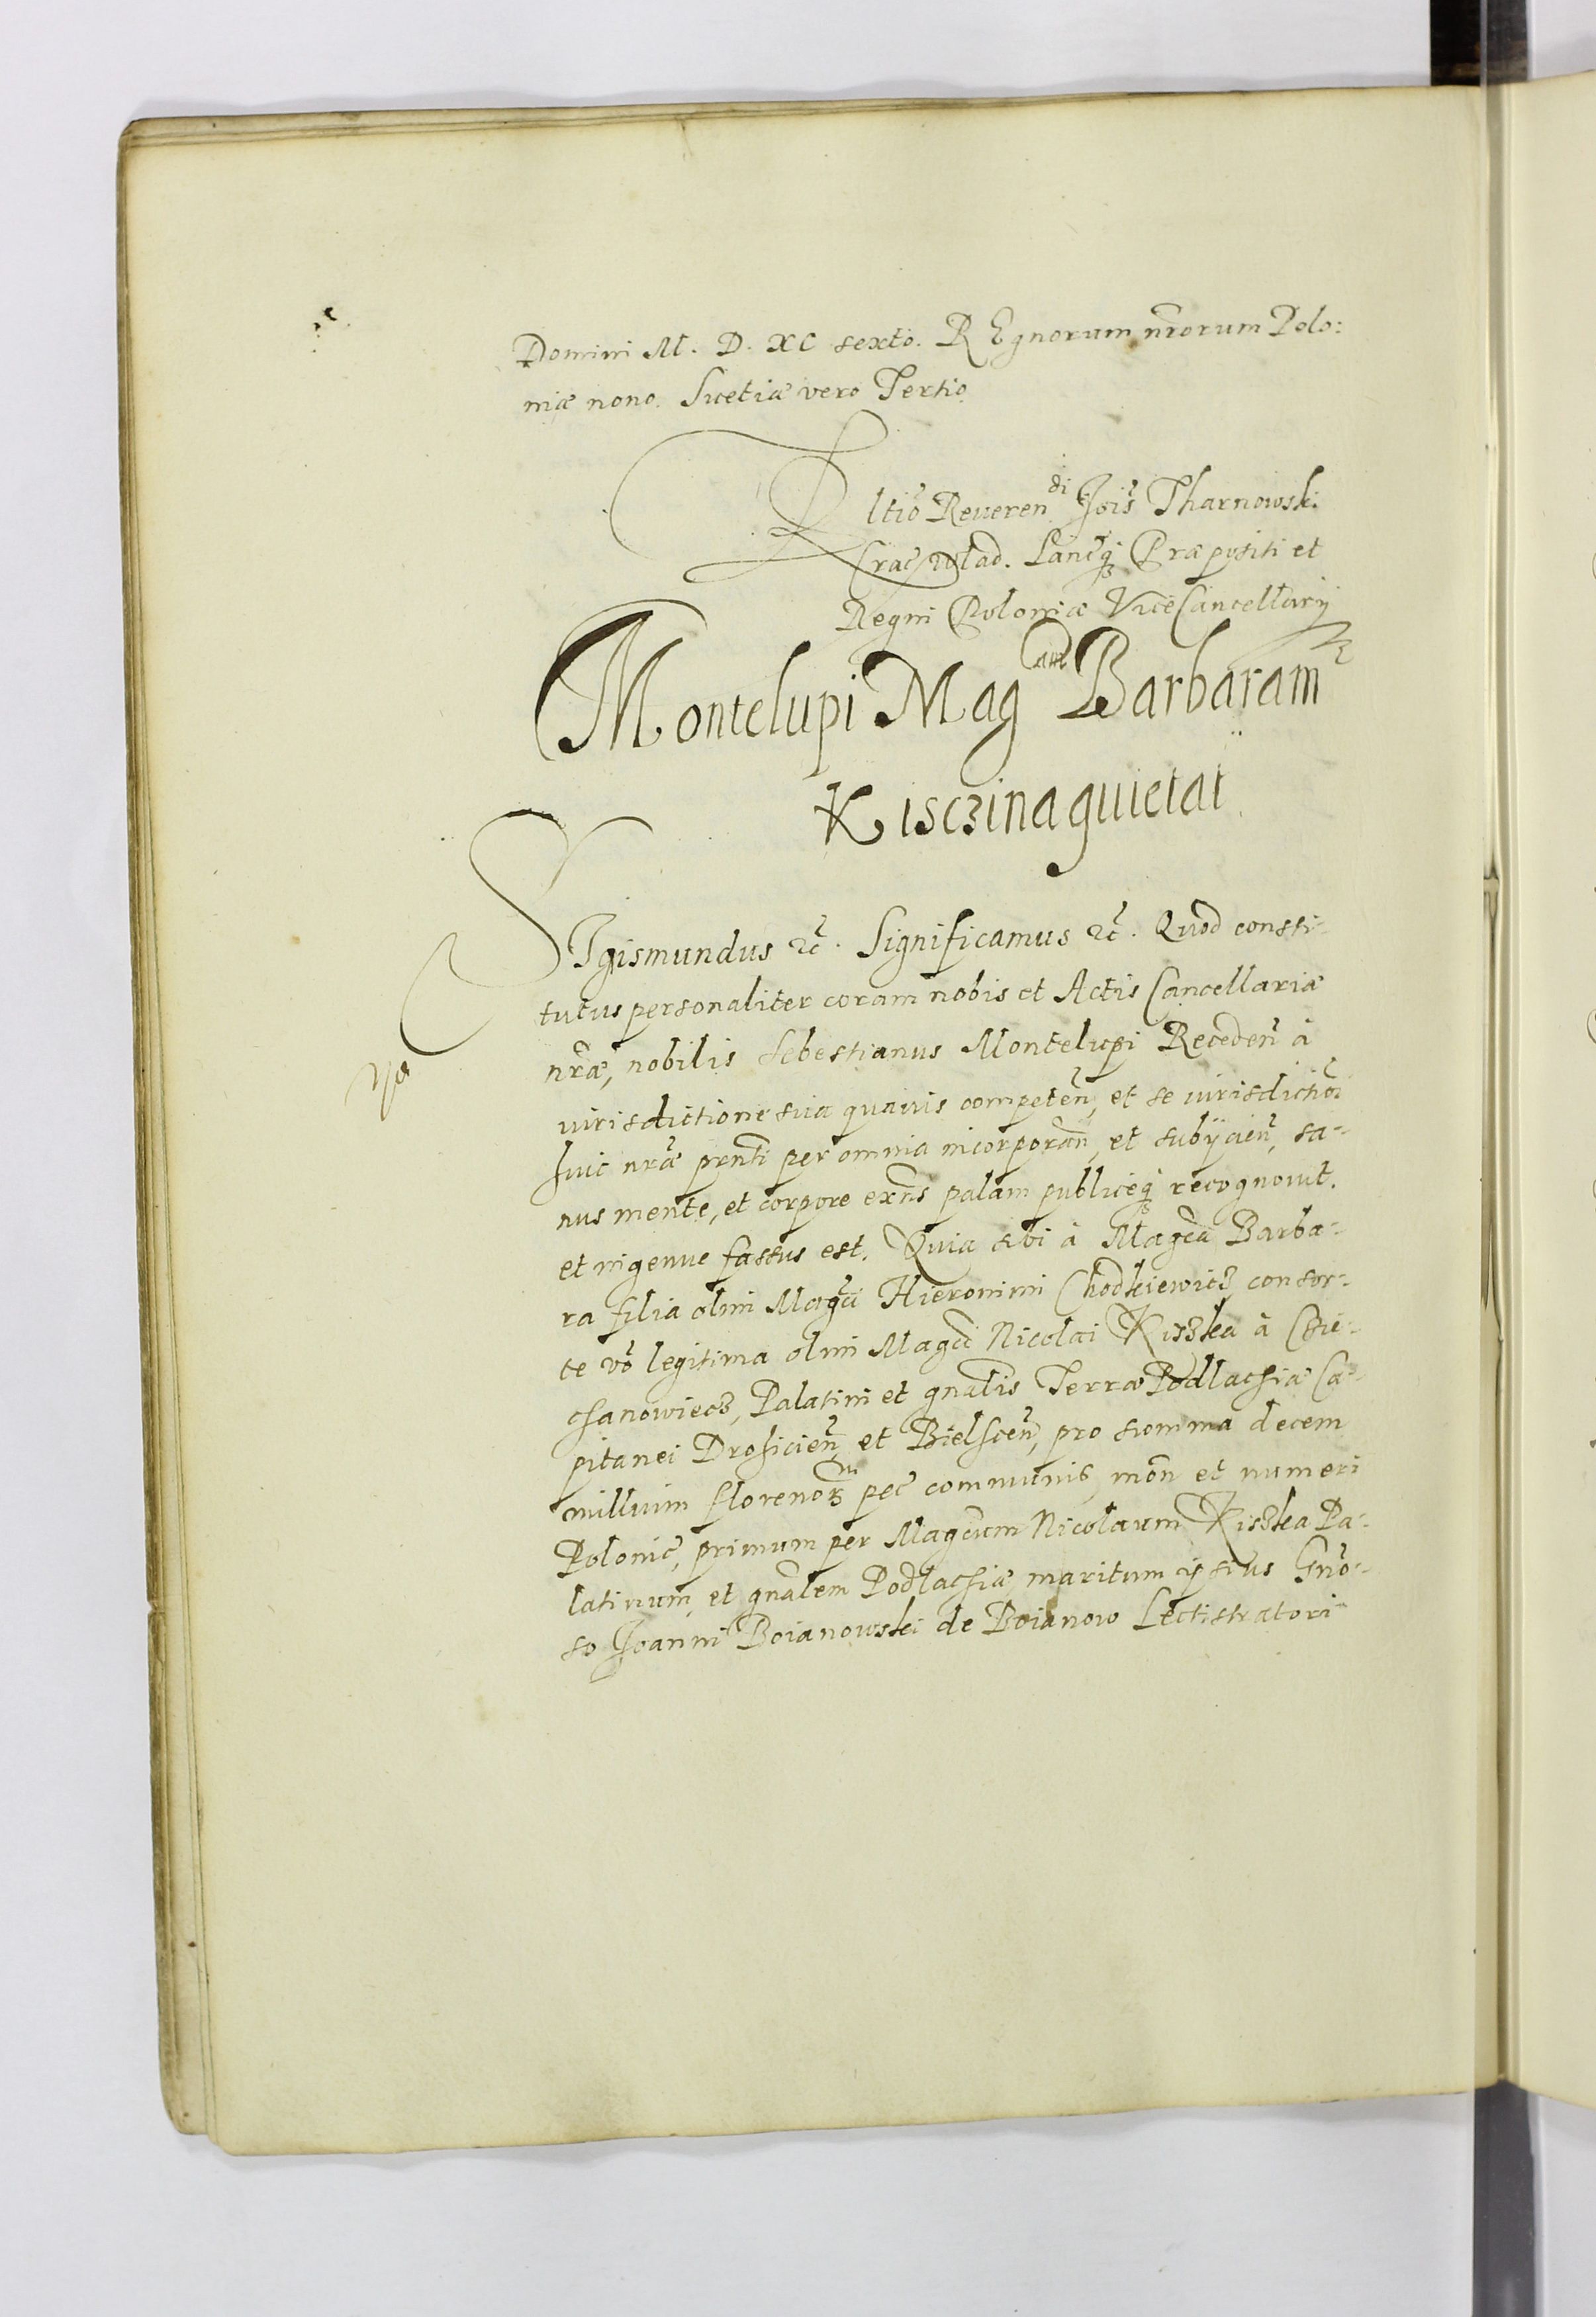 Domini M. D. XC sexto. REgnorum nr̄orum Polo:
niæ nono. Suetiæ vero Tertio
Rltiō Reueren di Jōis Tharnowski
Crac̄ Wlad. Lancq̄ Præpositi et
Regni Poloniæ ViceCancellarij
Montelupi Mag cam Barbaram
Kisczina quietat
SIgismundus ꝛc̄. Significamus ꝛc̄. Quod consti-
tutus personaliter coram nobis et Actis Cancellariæ
nr̄æ, nobilis Sebestianus Montelupi Receden̄ à
iurisdictione sua quauis competen̄, et se iurisdictioni
huic nr̄æ pn̄ti per omnia incorporan̄, et subÿcien̄, sa-
nus mente, et corpore exn̄s palam publiceq₃ recognouit.
et ingenue fassus est. Quia sibi à Magcā Barba-
ra filia olim Magci Hieronimi Chodkiewicz consor-
te vō legitima olim Magci Nicolai Kiszka à Cie-
chanowiecz, Palatini et gn̄alis Terræ Podlachiæ Ca-
pitanei Drohicien̄ et Bielscen̄, pro summa decem
millium florenor̄ pec̄ communis mōn et numeri
Polonic̄, primum per Magcum Nicolaum Kiszka Pa-
latinum, et gn̄alem Podlachiæ maritum ipsius Gn̄o-
so Joanni Boianowski de Boianow Lectistratori